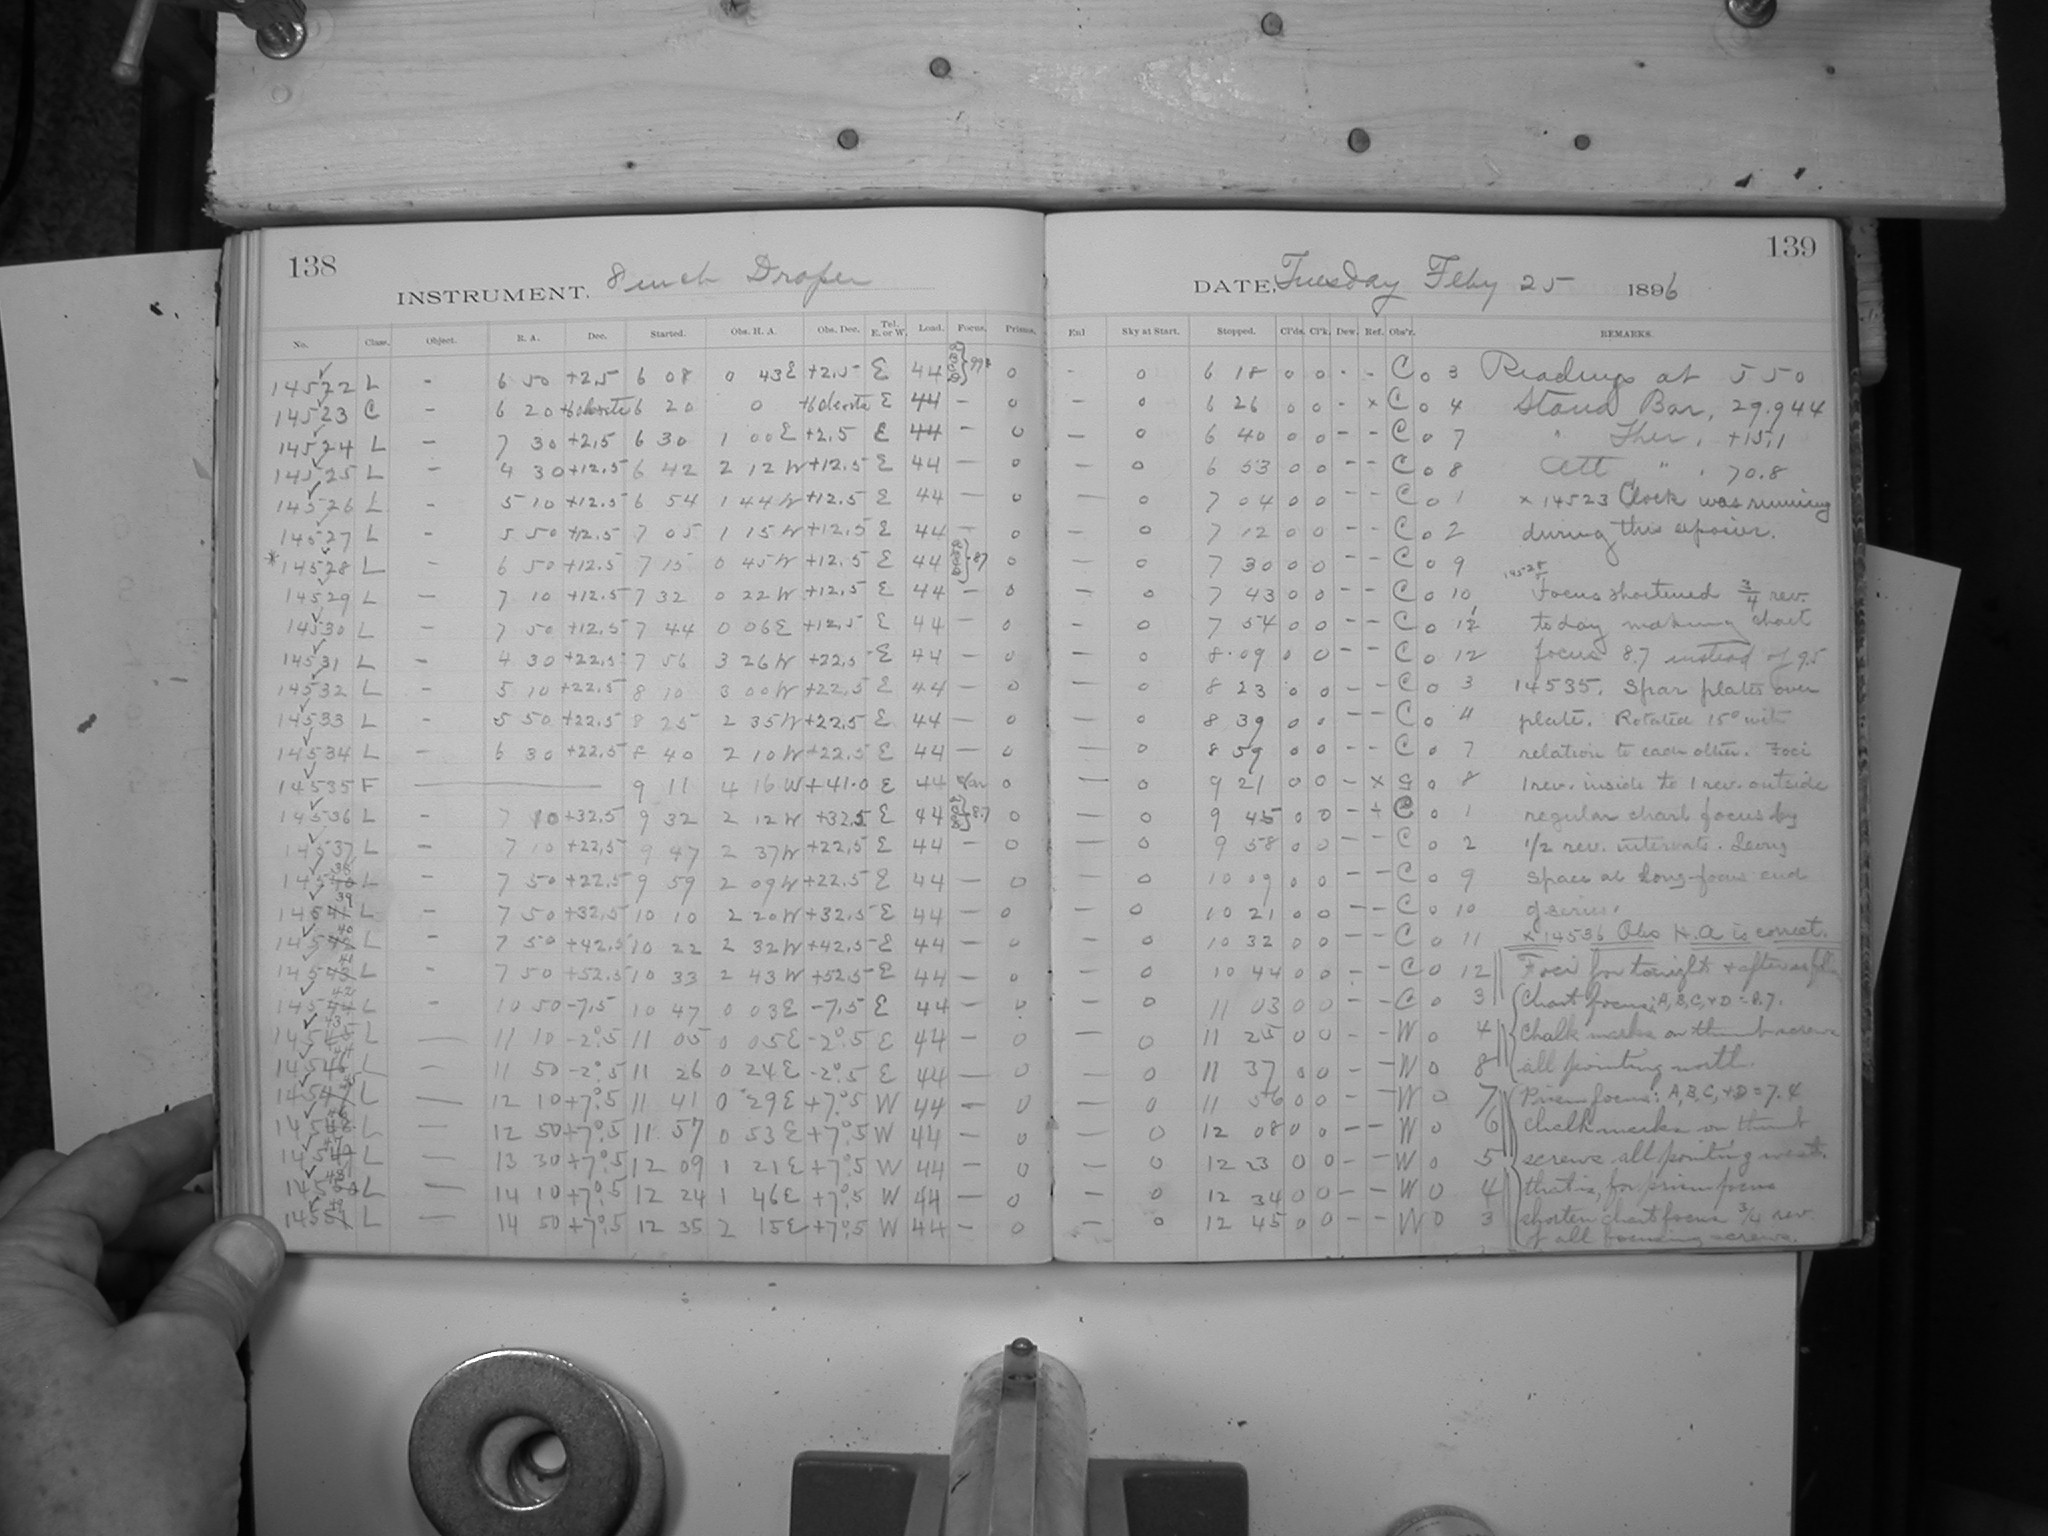 138
INSTRUMENT. 8 inch Draper
No. Class. Object. R. A. Dec. Started. Obs. H. A. Obs. Dec. Tel. E. or W. Load. Focus. Prisms.
14522 L - 6 50 +2.5 6 08 0 43E +2.5 E 44 0
14523 C - 6 20 6 20 0 E 44 - 0
14524 L - 7 30 +2.5 6 30 1 00E +2.5 E 44 - 0
14525 L - 4 30 +12.5 6 42 2 12W +12.5 E 44 - 0
14526 L - 5 10 +12.5 6 54 1 44W +12.5 E 44 - 0
14527 L - 5 50 +12.5 7 05 1 15W +12.5 E 44 - 0
*14528 L - 6 50 +12.5 7 15 0 45W +12.5 E 44 87 0
14529 L - 7 10 +12.5 7 32 0 22W +12.5 E 44 - 0
14530 L - 7 50 +12.5 7 44 0 06E +12.5 E 44 - 0
14531 L - 4 30 +22.5 7 56 3 26W +22.5 E 44 - 0
14532 L - 5 10 +22.5 8 10 3 00W +22.5 E 44 - 0
14533 L - 5 50 +22.5 8 25 2 35W +22.5 E 44 - 0
14534 L - 6 30 +22.5 8 40 2 10W +22.5 E 44 - 0
14535 F — 9 11 4 16W +41.0 E 44 Var 0
14536 L - 7 10 +32.5 9 32 2 12W +32.5 E 44 8.7 0
14537 L - 7 10 +22.5 9 47 2 37W +22.5 E 44 - 0
14540 38 L - 7 50 +22.5 9 59 2 09W +22.5 E 44 - 0
14541 39 L - 7 50 +32.5 10 10 2 20W +32.5 E 44 - 0
14542 40 L - 7 50 +42.5 10 22 2 32W +42.5 E 44 - 0
14543 41 L - 7 50 +52.5 10 33 2 43W +52.5 E 44 - 0
14544 42 L - 10 50 -7.5 10 47 0 03E -7.5 E 44 - 0
14545 43 L — 11 10 -2°.5 11 05 0 05E -2°.5 E 44 - 0
14546 44 L - 11 50 -2°.5 11 26 0 24E -2°.5 E 44 - 0
14547 45 L — 12 10 +7°.5 11 41 0 29E +7°.5 W 44 - 0
14548 46 L — 12 50 +7°.5 11 57 0 53E +7°.5 W 44 - 0
14549 47 L — 13 30 +7°.5 12 09 1 21E +7°.5 W 44 - 0
14550 48 L — 14 10 +7°.5 12 24 1 46E +7°.5 W 44 - 0
14551 49 L — 14 50 +7°.5 12 35 2 15E +7°.5 W 44 - 0
139
DATE, Tuesday Feby 25 1896
Enl Sky at Start. Stopped. Cl'ds. Cl'k. Dew. Ref. Obs'r. REMARKS.
- 0 6 18 0 0 - - C 0 3 Readings at 5 50
- 0 6 26 0 0 - x C 0 4 Stand Bar, 29.944
- 0 6 40 0 0 - - C 0 7 " Ther, +15.1
- 0 6 53 0 0 - - C 0 8 Att " . 70.8
- 0 7 04 0 0 - - C 0 1 x 14523 Clock was running
- 0 7 12 0 0 - - C 0 2 during this
- 0 7 30 0 0 - - C 0 9 14528
- 0 7 43 0 0 - - C 0 10 Focus shortened 3/4 rev.
- 0 7 54 0 0 - - C 0 today making chart
- 0 8 09 0 0 - - C 0 12 focus 8.7 instead of 9.5
- 0 8 23 0 0 - - C 0 3 14535. Spar plates over
- 0 8 39 0 0 - - C 0 4 plate. Rotated 15° with
- 0 8 59 0 0 - - C 0 7 relation to each other. Foci
- 0 9 21 0 0 - x G 0 8 1 rev. inside to 1 rev. outside
- 0 9 45 0 0 - + C 0 1 regular chart focus by
- 0 9 58 0 0 - - C 0 2 1/2 rev. intervals. Long
- 0 10 09 0 0 - - C 0 9 space at long-focus end
- 0 10 21 0 0 - - C 0 10 of series.
- 0 10 32 0 0 - - C 0 11 x 14536 Obs H.A is correct.
- 0 10 44 0 0 - - C 0 12 Foci for tonight + after as
- 0 11 03 0 0 - - C 0 3 Chart focus: A, B, C, + D = 8.7.
- 0 11 25 0 0 - - W 0 4 Chalk marks on thumb-screws
- 0 11 37 0 0 - - W 0 8 all pointing north.
- 0 11 56 0 0 - - W 0 7 Prism focus: A, B, C, + D = 7.4
- 0 12 08 0 0 - - W 0 6 chalk marks on thumb
- 0 12 23 0 0 - - W 0 5 screws all pointing west.
- 0 12 34 0 0 - - W 0 4 that is, for prism focus
- 0 12 45 0 0 - - W 0 3 shorten chart focus 3/4 rev
of all focusing screws.